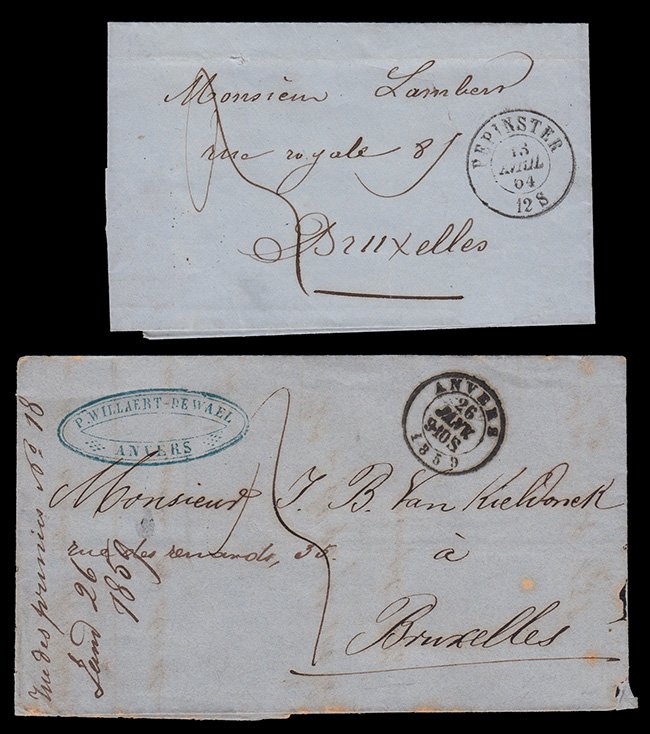 Monsieur Lambert
rue royale 85
Bruxelles
PEPINSTER
13
AVRIL
64
12 S
P. WILLAERT-DEWAEL
ANVERS
ANVERS
26
JANV.
9-10 S
1859
Monsieur J. B. Van Kielvonck
rue des renards, 35
à
Bruxelles
Rue des prunius No 18
Land 26
1859